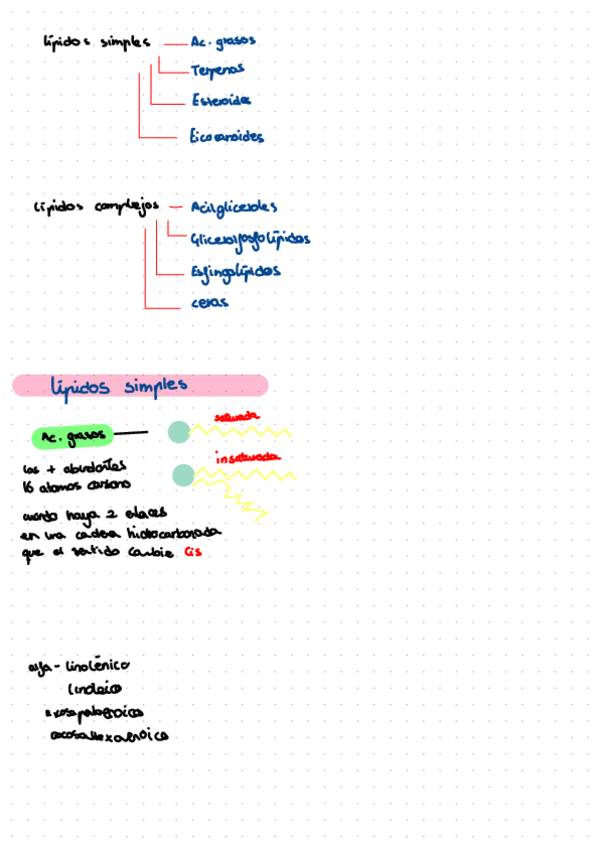 lípidos simples — Ac. grasos
Terpenos
Esteroides
Eicosanoides
Lípidos complejos — Acilgliceroles
Glicerolfosfolípidos
Esfingolípidos
ceras
lípidos simples
saturada
Ac. grasos
insaturada
los + abundantes
16 atomos carbono
cuando haya 2 enlaces
en una cadena hidrocarbonada
que el sentido cambie cis
alfa - linolénico
linoleico